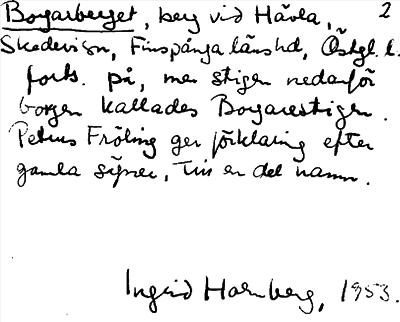 Borgarberget, berg vid Hävla, 2
Skedevi sn, Finspånga länshd, Östgl. l.
forts. på, men stigen nedanför
borgen kallades Borgarestigen.
Petrus Fröling ger förklaring efter
gamla sägner, till er del namn.
Ingrid Harnberg, 1953.